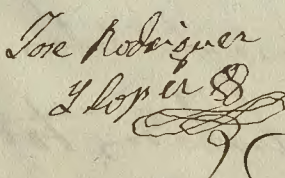 Jose Rodriguez
Y lopez